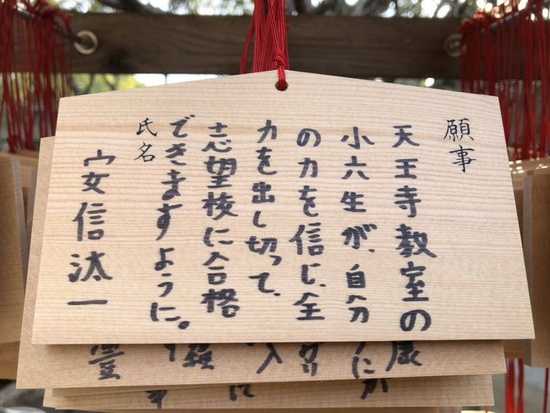 願事
天王寺教室の
小六生が、自分
の力を信じ、全
力を出し切って、
志望校に合格
できますように。
氏名
安信汰一